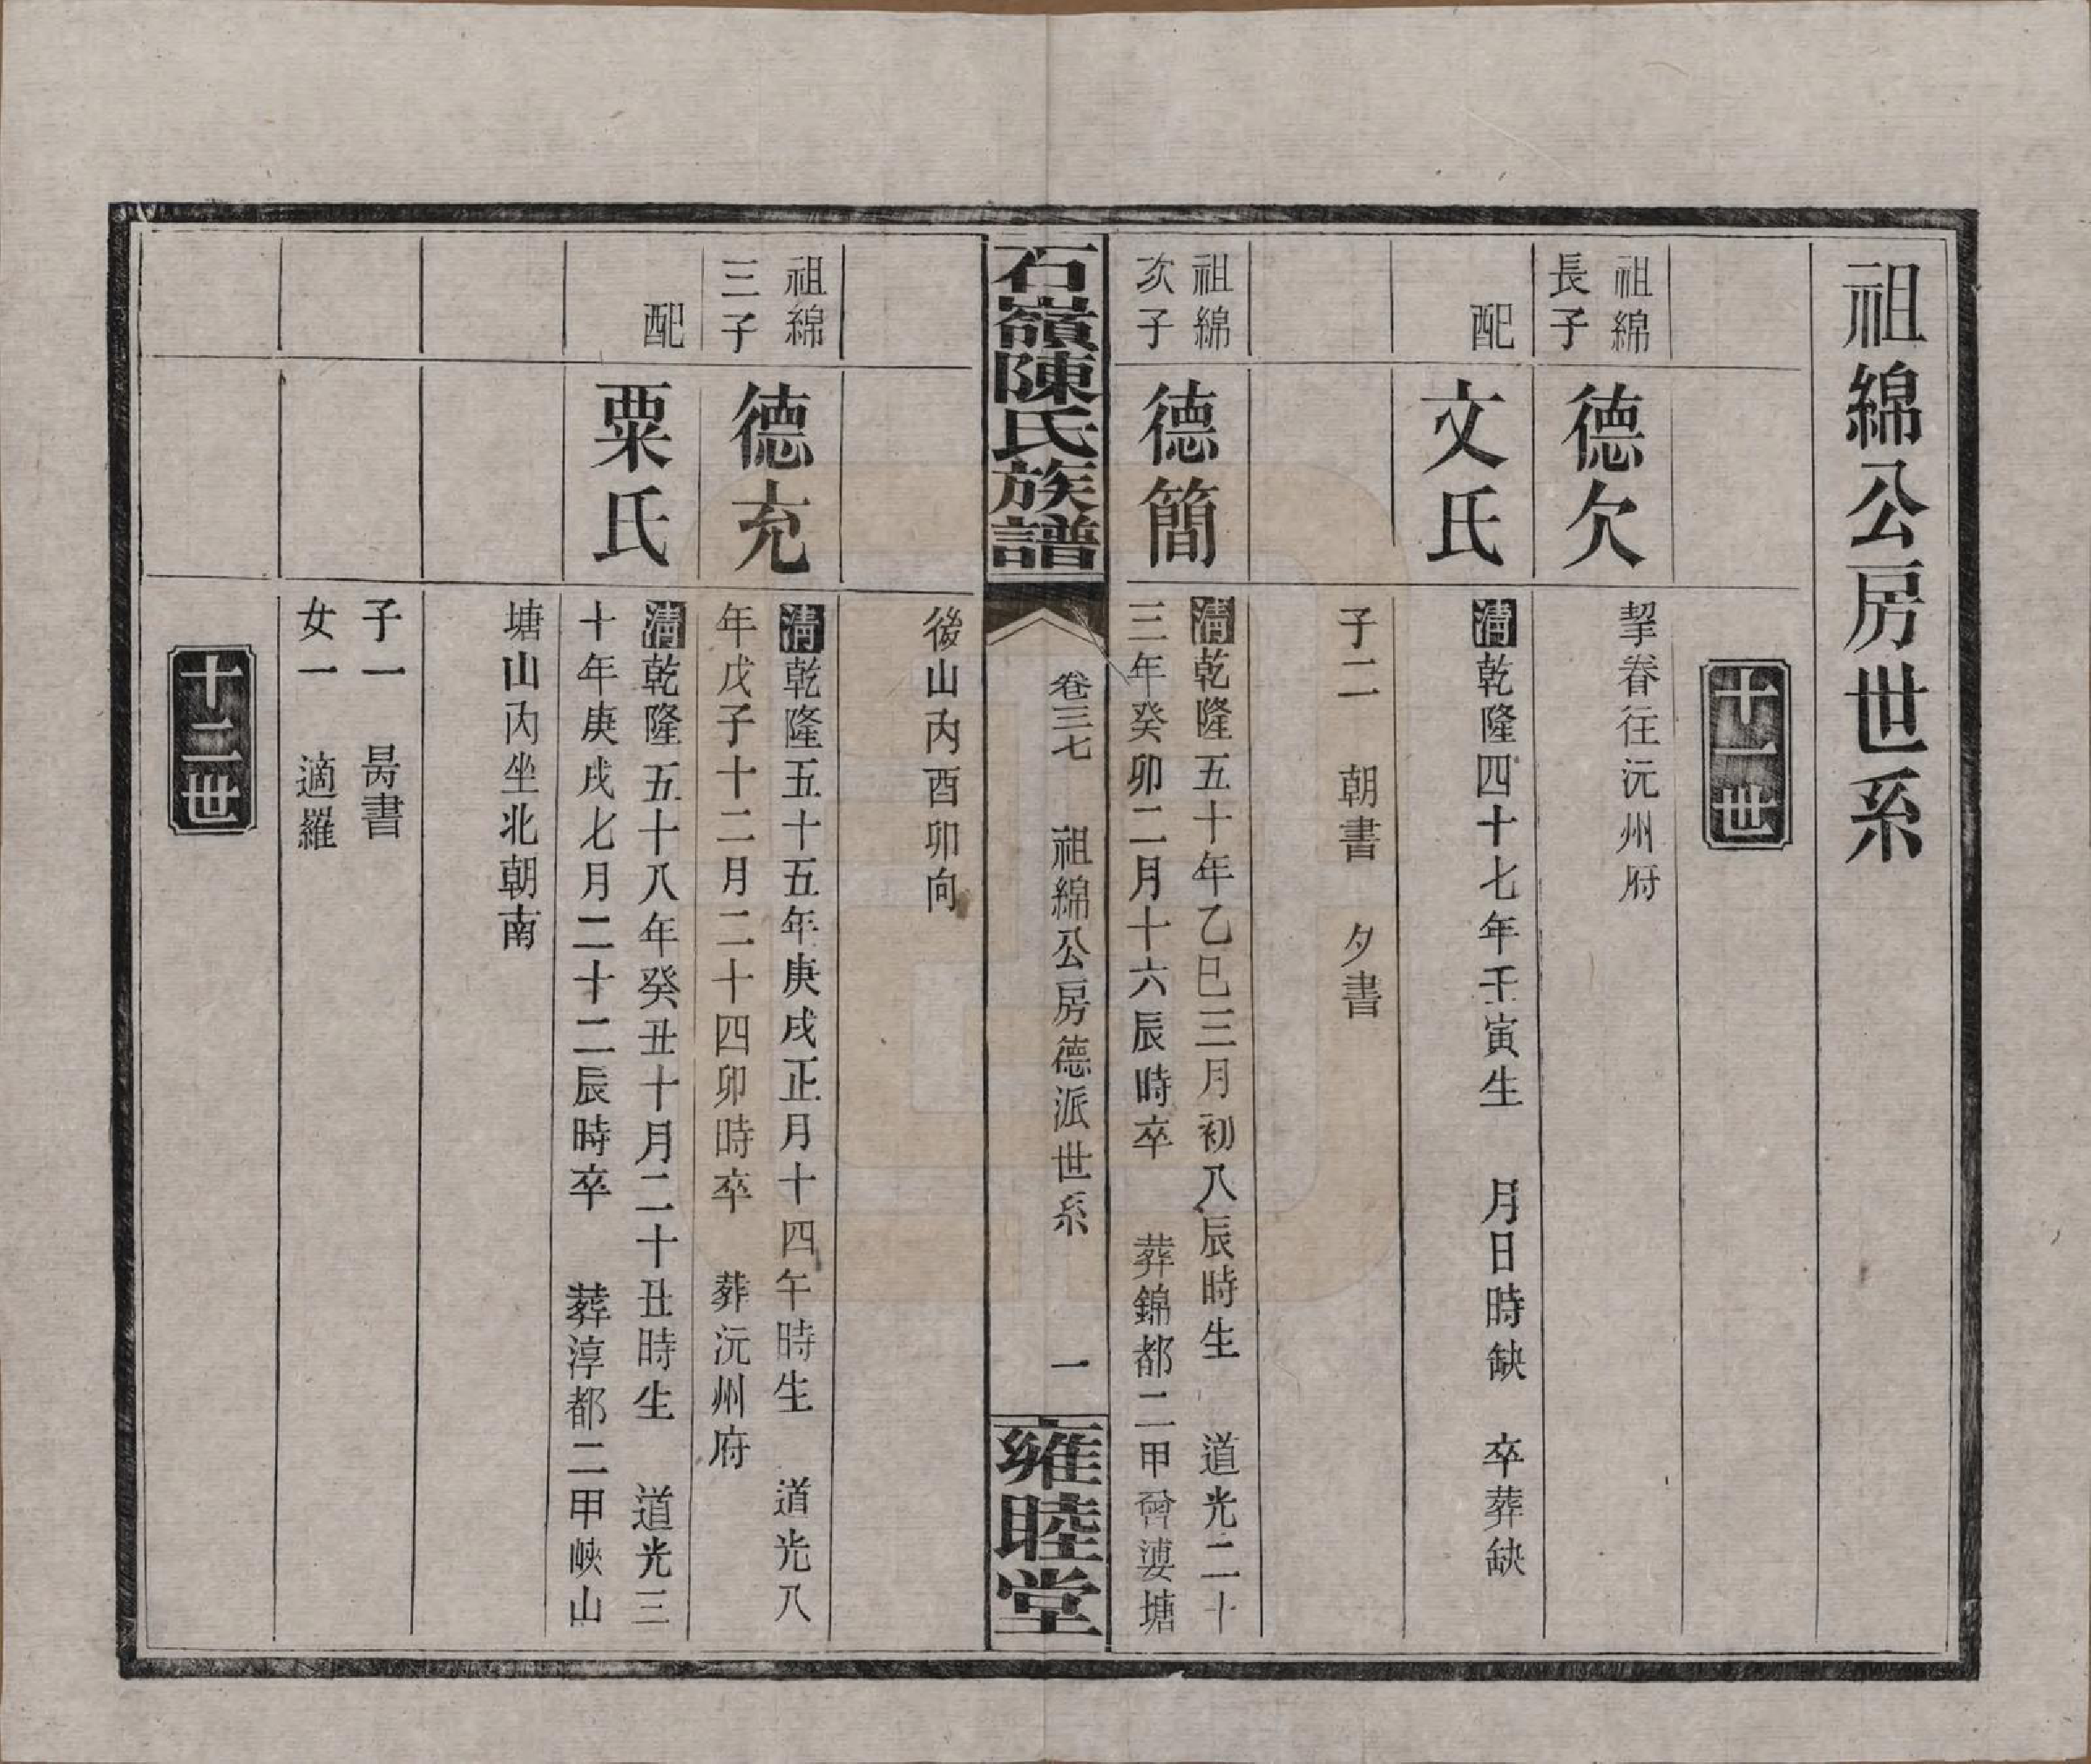 祖綿公房世系
十一世
祖綿
長子
德欠
挈眷往沅州府
配
文氏
清乾隆四十七年壬寅生　月日時缺　卒葬缺
子二　朝書　夕書
祖綿
次子
德簡
清乾隆五十年乙巳三月初八辰時生　道光二十
三年癸卯二月十六辰時卒　葬錦都二甲曾婆塘
石嶺陳氏族譜
卷三七　祖綿公房德派世系　一
雍睦堂
後山內酉卯向
祖綿
三子
德充
清乾隆五十五年庚戌正月十四午時生　道光八
年戊子十二月二十四卯時卒　葬沅州府
配
粟氏
清乾隆五十八年癸丑十月二十丑時生　道光三
十年庚戌七月二十二辰時卒　葬淳都二甲峽山
塘山內坐北朝南
子一　昺書
女一　適羅
十二世